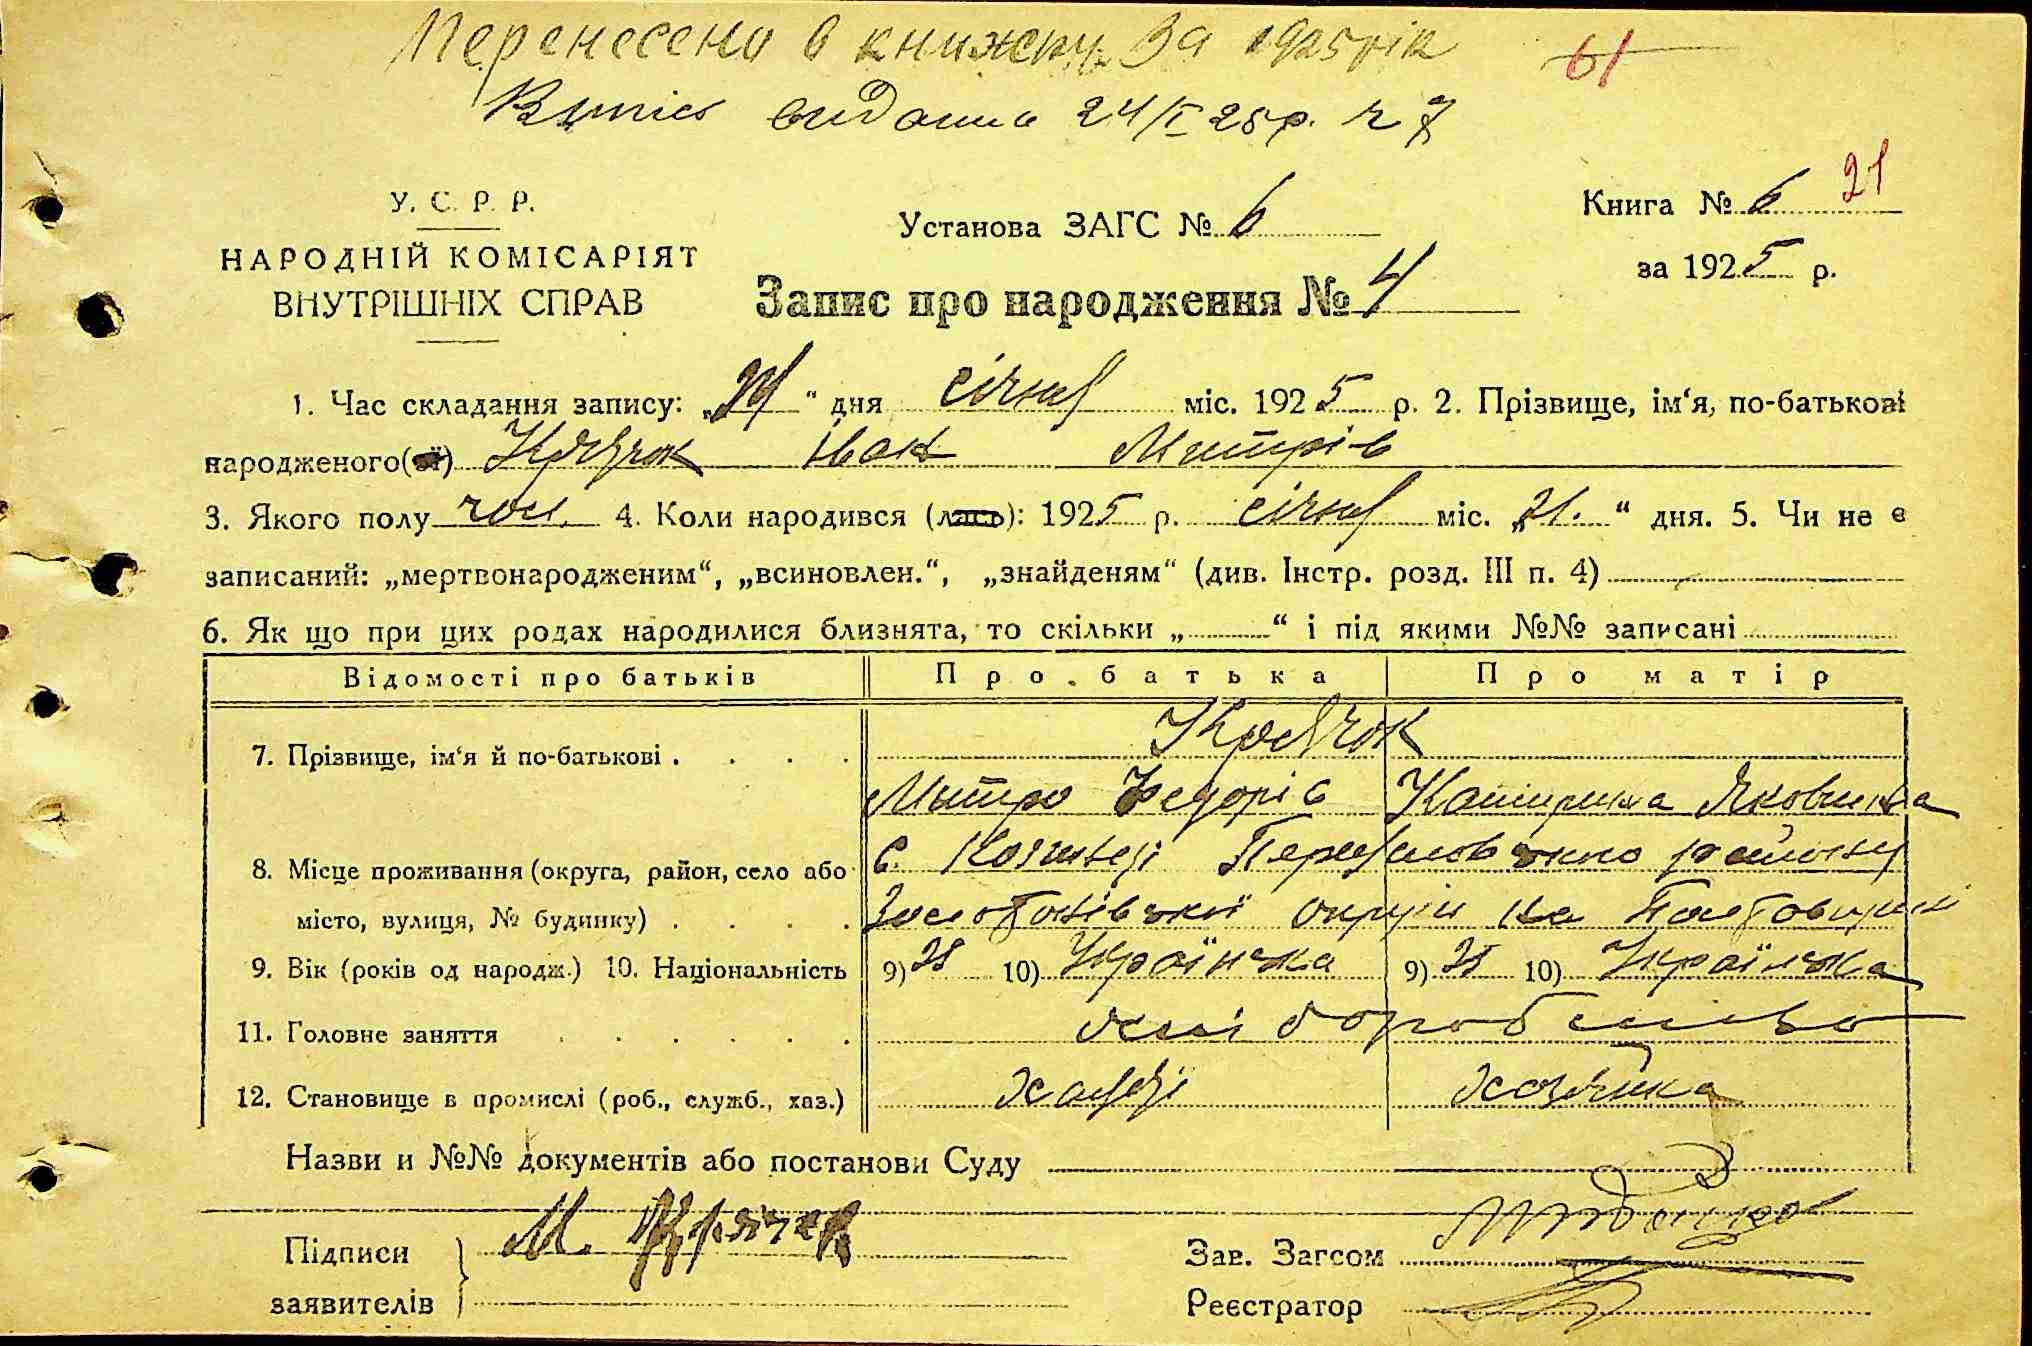 Перенесено в книжку за 1925 рік
61
Випись видана 24/I 25 р. ч 7
21
У. С. Р. Р.
НАРОДНІЙ КОМІСАРІЯТ
ВНУТРІШНІХ СПРАВ
Установа ЗАГС № 6
Книга № 6
за 1925 р.
Запис про народження № 4
1. Час складання запису: „24“ дня січня міс. 1925 р. 2. Прізвище, ім‘я, по-батькові
народженого(ої) Крячок Іван Митрів
3. Якого полу чол. 4. Коли народився (лась): 1925 р. січня міс. „21.“ дня. 5. Чи не є
записаний: „мертвонародженим“, „всиновлен.“, „знайденям“ (див. Інстр. розд. III п. 4)
6. Як що при цих родах народилися близнята, то скільки „ “ і під якими №№ записані
Відомості про батьків Про батька Про матір
7. Прізвище, ім‘я й по-батькові . . . . Крячок
Митро Федорів Катирина Яковивна
8. Місце проживання (округа, район, село або с. району
місто, вулиця, № будинку) . . . . Золотонівської округи на Полтавщині
9. Вік (років од народж.) 10. Національність 9) 10) Українська 9) 10) Українська
11. Головне заняття . . . . . . хліборобство
12. Становище в промислі (роб., служб., хаз.) хазяї хозяйка
Назви и №№ документів або постанови Суду
Підписи
заявителів
М. Крячок
Зав. Загсом
Реєстратор